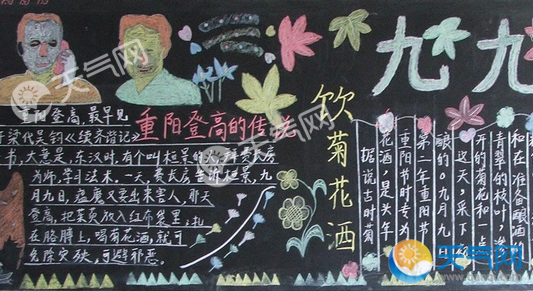 重阳登高的传说
重阳登高,最早见
于梁代吴钧《续齐谐记》
一书,大意是,东汉时,有个叫桓景的人,拜费长房
为师,学习法术。一天,费长房告诉桓景,九
月九日,瘟魔又要出来害人,那天
登高,把茱萸放入红布袋里,扎
在胳膊上,喝菊花酒,就可
免除灾殃,可避邪恶。
饮菊花酒
据说古时菊
花酒,是头年
重阳节时专为
第二年重阳节
酿的。九月九
这天,采下
开的菊花和一点
青翠的枝叶,
和在准备酿酒
九九
天气网
天气网
天气网
天气网